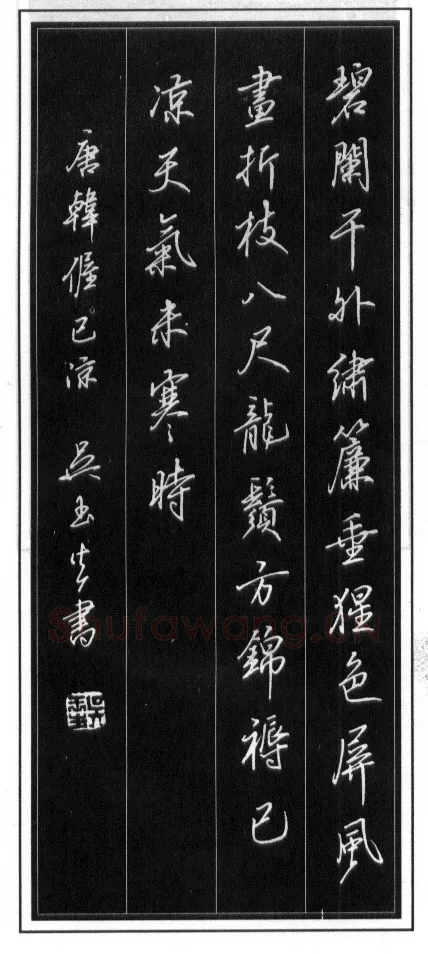 碧闌干外繡簾垂猩色屏風
畫折枝八尺龍鬚方錦褥已
涼天氣未寒時
唐韓偓已涼 吳玉生書
Shufawang.CN